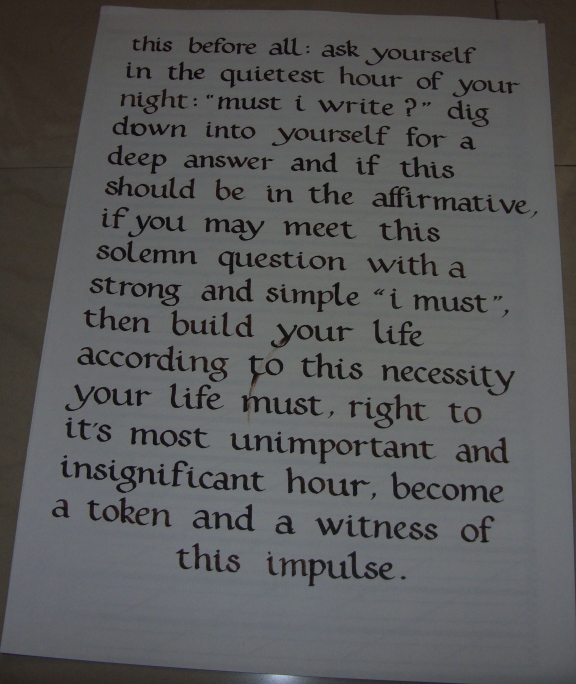 this before all: ask yourself
in the quietest hour of your
night: "must i write ?" dig
down into yourself for a
deep answer and if this
should be in the affirmative,
if you may meet this
solemn question with a
strong and simple "i must",
then build your life
according to this necessity
your life must, right to
it's most unimportant and
insignificant hour, become
a token and a witness of
this impulse.